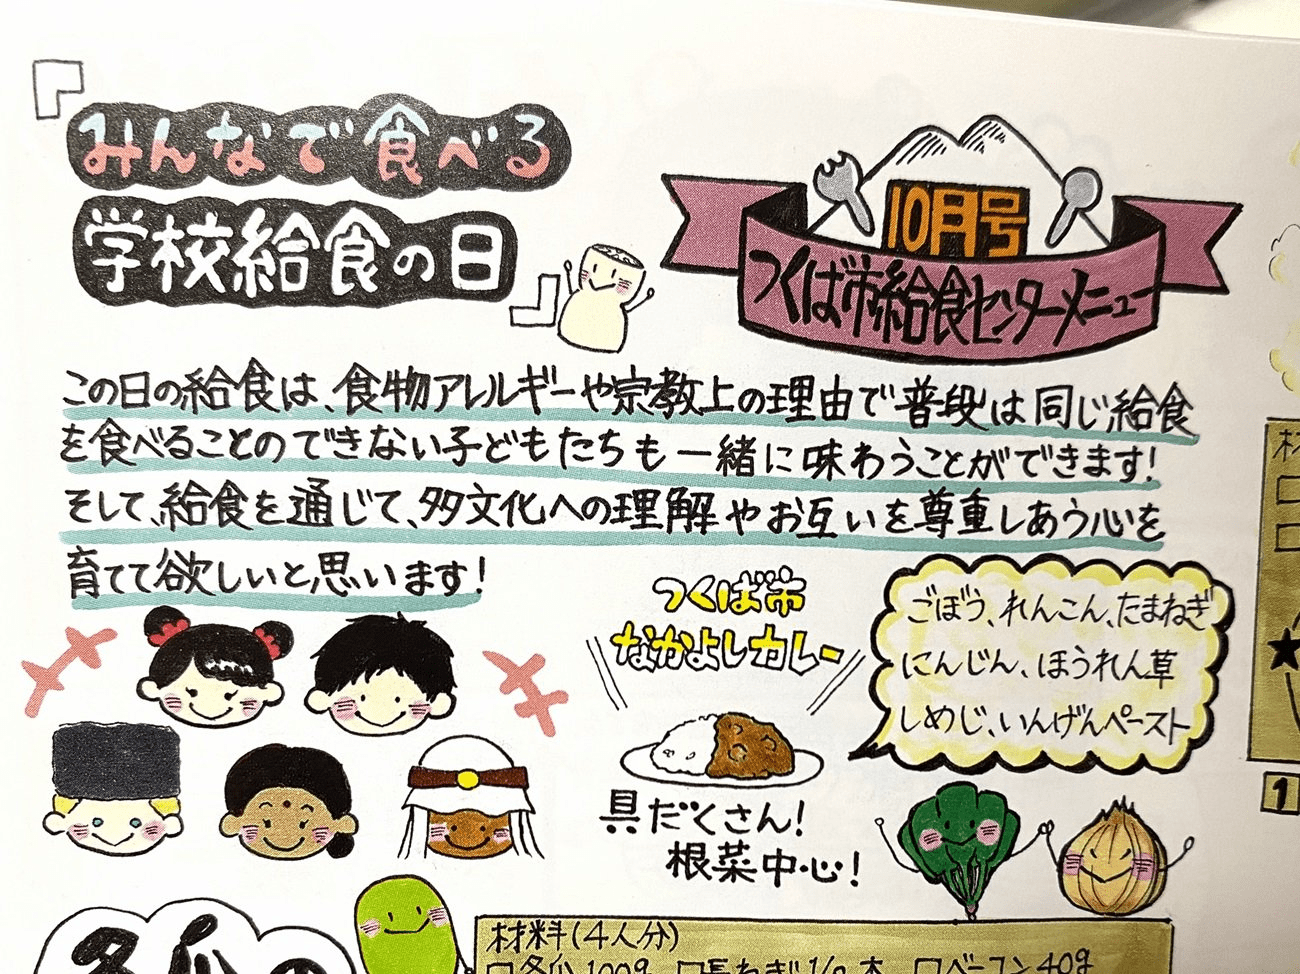 『みんなで食べる
学校給食の日』
10月号
つくば市給食センターメニュー
この日の給食は、食物アレルギーや宗教上の理由で普段は同じ給食
を食べることのできない子どもたちも一緒に味わうことができます!
そして、給食を通じて、多文化への理解やお互いを尊重しあう心を
育てて欲しいと思います!
つくば市
なかよしカレー
ごぼう、れんこん、たまねぎ
にんじん、ほうれん草
しめじ、いんげんペースト
具だくさん!
根菜中心!
冬瓜の
材料(4人分)
□冬瓜100g □長ねぎ1/2本 □ベーコン40g
材
1